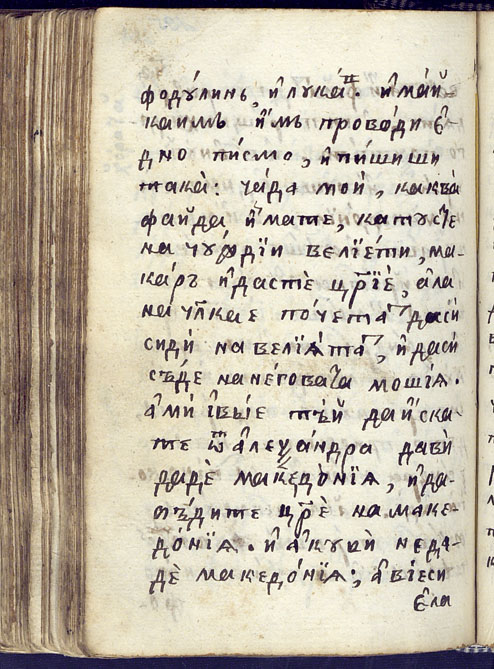 фодꙋ́линь, и҆ лꙋка́ⷫ҇. и҆ ма́й-
каимъ и҆́мъ проводи є҆-
дно пи́смо, и҆ пи́шиши
така̀: ча́да мой, ка́ква
файда и҆́мате, катꙋ сте
на чꙋждїи велїе́ти, ма-
ка́ръ и҆ да стѐ цр҃їѐ, а҆ла
на чл҃ка е по́чета та̀ да си
сиди́ на велїѧ́та, и҆ да си
сѣ́де на не́говата мошїѧ.
а҆ми і҆ вы́е тꙋ́й да и҆́ска
те ѿ а҆леѯа́ндра да ви
дадѐ македо́нїѧ, и҆ да
бѫ́дите цр҃ѐ на маке-
до́нїѧ. и҆ а҆ку ви̏ не да-
дѐ македо́нїѧ; а҆ вїе си
є҆ла